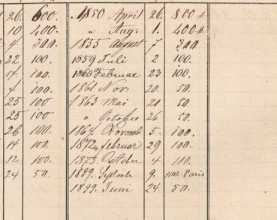 26. 600. 1850 April 26. 800
10 400. " Aug. 1. 400
9 200. 1855 August 7 200
22 100. 1859 Juli 2 100.
4 100. 1860 Februar 23 100.
4 100. 1861 Nov. 20 50.
25 100 1863 Mai 20 50.
25 100 " October 26 50.
26 100. 1867 Novemb 5 100.
14 100. 1872 Februar 29 100.
12 100. 1873 October 4 110.
24 50. 1889. 9
1899. Juni 24 50.